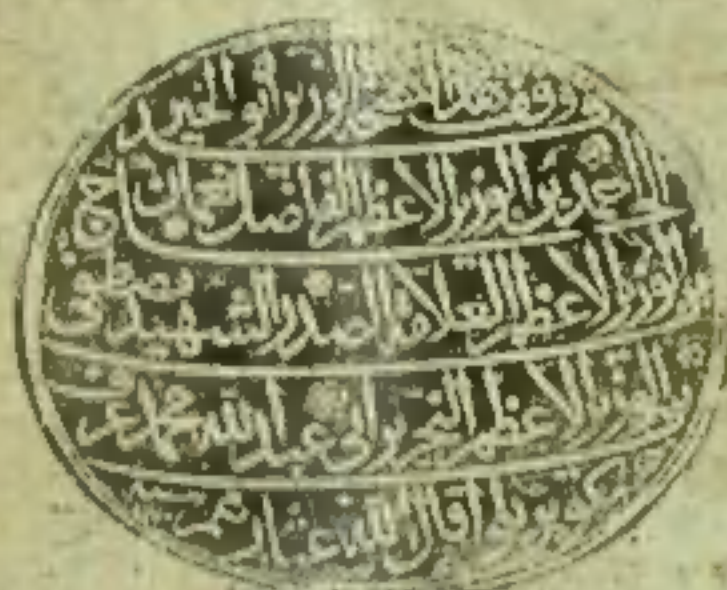 وقف هذا الوزير أبو الخير
احمد بن الوزير الاعظم الفاضل نعمان
بن الوزير الاعظم العلامة الصدر الشهيد مصطفى
بن الوزير الاعظم النحرير ابي عبد الله محمد عرف
بكوبريلي اقال الله عثارهم